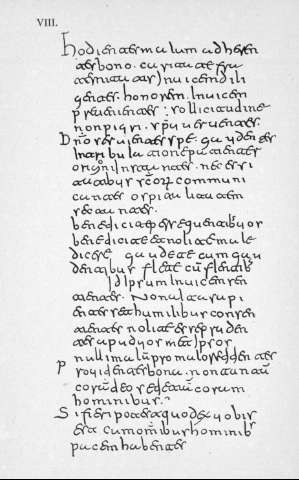 VIII.
hodientes malum adheren
tes bono. caritate fra
ternitatis invicem dili
gentes. honorem invicem
prevenientes: sollicitudine
non pigri. spu ferventes.
Dno servientes spe gaudentes
In tribulatione patientes
orationi instantes. necessi
tatibus scorum communi
cantes ospitalitatem
sectantes.
benedicite persequentibus vos
benedicite et nolite male
dicere gaudete cum gau
dentibus flete cu flentib
Id ipsum invicem sen
tientes. Non alta sapi
entes set humilibus consen
tientes nolite esse pruden
tes aput vosmet ipsos
nulli malu pro malo reddentes
providentes bona. non tantu
coru deo set etiau corum
hominibus.
Si fieri potest quod ex vobis
est cum omibus hominib
pacem habentes